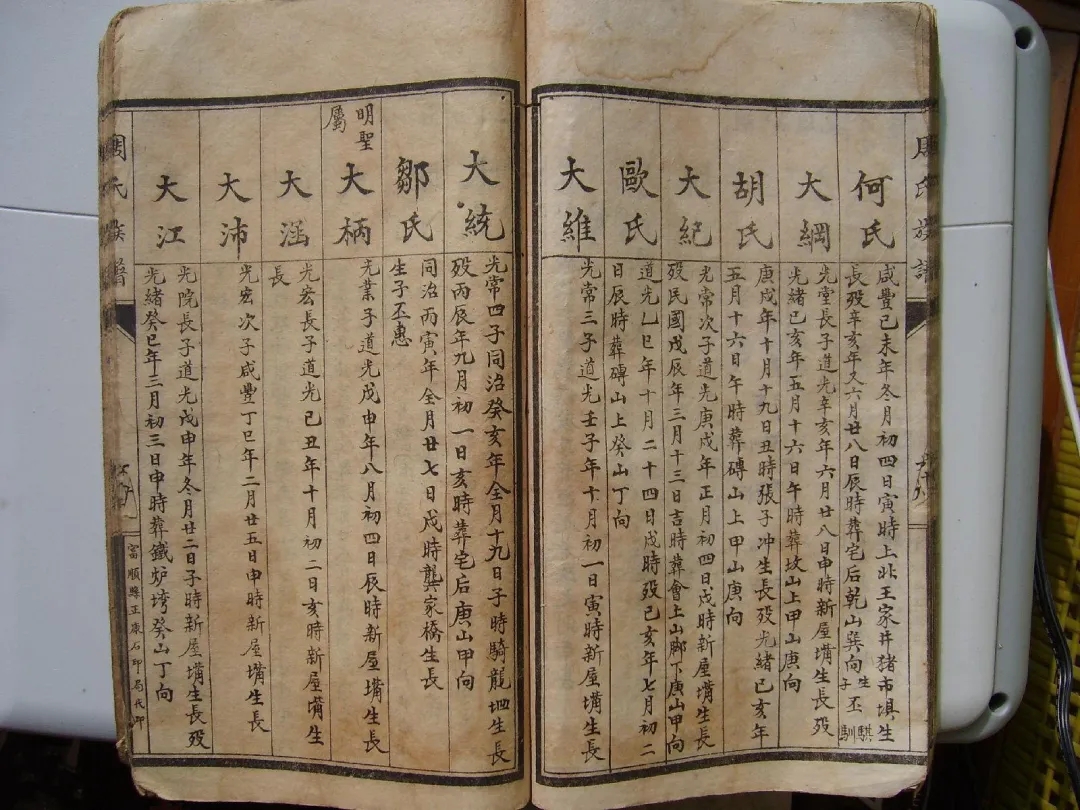 周氏族譜
何氏
咸豐己未年冬月初四日寅時上北王家井猪市埧生
長殁辛亥年又六月廿八日辰時葬宅后乾山巽向生子丕騏馴
大綱
光堂長子道光辛亥年六月廿八日申時新屋塆生長殁
光緒己亥年五月十六日午時葬坟山上甲山庚向
胡氏
庚戍年十月十九日丑時張子冲生長殁光緒己亥年
五月十六日午時葬磚山上甲山庚向
大紀
光常次子道光庚戍年正月初四日戍時新屋塆生長
殁民國戊辰年三月十三日吉時葬會上山腳下庚山甲向
歐氏
道光乙巳年十月二十四日戍時殁己亥年七月初二
日辰時葬磚山上癸山丁向
大維
光常三子道光壬子年十月初一日寅時新屋塆生長
大統
光常四子同治癸亥年仝月十九日子時騎龍坳生長
殁丙辰年九月初一日亥時葬宅后庚山甲向
鄒氏
同治丙寅年仝月廿七日戍時龔家橋生長
生子丕惠
明聖
屬
大柄
光業子道光戊申年八月初四日辰時新屋塆生長
大滛
光宏長子道光己丑年十月初二日亥時新屋塆生
長
大沛
光宏次子咸豐丁巳年二月廿五日申時新屋塆生長
大江
光院長子道光戊申年冬月廿二日子時新屋塆生長殁
光緒癸巳年三月初三日申時葬鐵炉垮癸山丁向
周氏族譜
富順縣正康石印局代印